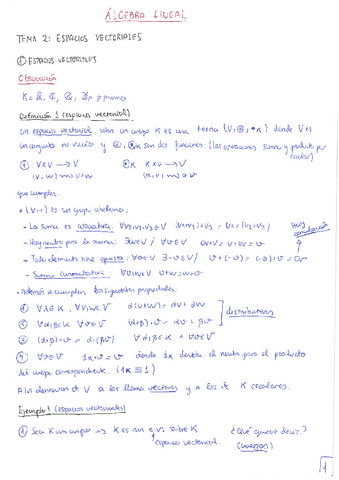 ÁLGEBRA LINEAL
TEMA 2: ESPACIOS VECTORIALES
① ESPACIOS VECTORIALES
Observación
K = ℝ, ℂ, ℚ, ℤp p primo
Definición 1 (espacios vectorial)
Un espacio vectorial sobre un cuerpo K es una terna (V, ⊕, •K) donde V es
un conjunto no vacío y ⊕, •K son dos funciones: (las operaciones suma y producto por
escalar)
⊕: V×V → V
•K K×V → V
(v, w) ↦ v+w
(α, v) ↦ α·v
que cumplen:
• (V, +) es un grupo abeliano:
- La suma es asociativa: ∀v1,v2,v3 ∈ V (v1+v2)+v3 = v1+(v2+v3)
- Hay neutro para la suma: ∃ ∈ V / ∀v∈V
- Todo elemento tiene opuesto: ∀v∈V ∃ -v∈V / v+(-v) = (-v)+v = 0v
- Suma conmutativa: ∀v,w∈V v+w = w+v
Hay
• Además se cumplen las siguientes propiedades:
① ∀α∈K, ∀v,w∈V α(v+w) = αv + αw
② ∀α,β∈K ∀v∈V (α+β)·v = αv + βv
distributivas
③ (α·β)·v = α·(βv) ∀α,β∈K ∧ ∀v∈V
④ ∀v∈V 1K·v = v donde 1K denota el neutro para el producto
del cuerpo correspondiente. (1K ≡ 1)
A los elementos de V se les llama vectores y a los de K escalares.
Ejemplo 1 (espacios vectoriales)
① Sea K un cuerpo ⇒ K es un e.v. sobre K
¿Qué quiere decir?
espacio vectorial.
(cuerpo)
1